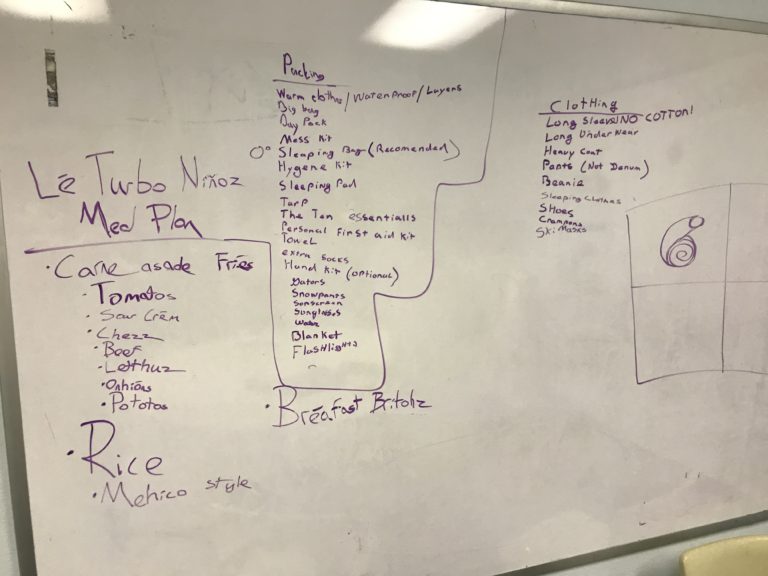 Lé Turbo Niñoz
Med Plan
• Carne asade Fries
• Tomatos
• Sour Crém
• Chezz
• Beef
• Letthuz
• Onhions
• Pototos
• Rice
• Mehico style
Packing
Warm clothes/Waterproof/Layers
Big bag
Day Pack
Mess Kit
0° Sleaping Bag (Recomended)
Hygene Kit
Sleeping Pad
Tarp
The Ten essentialls
Personal First aid Kit
Towel
extra socks
Hund Kit (optional)
Gators
Snowpants
Sunscreen
Sunglasses
Water
Blanket
Flashlights
• Bréafast Britohz
Clothing
Long Sleeve NO COTTON!
Long Underwear
Heavy Coat
Pants (Not Denum)
Beanie
Sleeping Clothes
Shoes
Crampons
Ski Masks